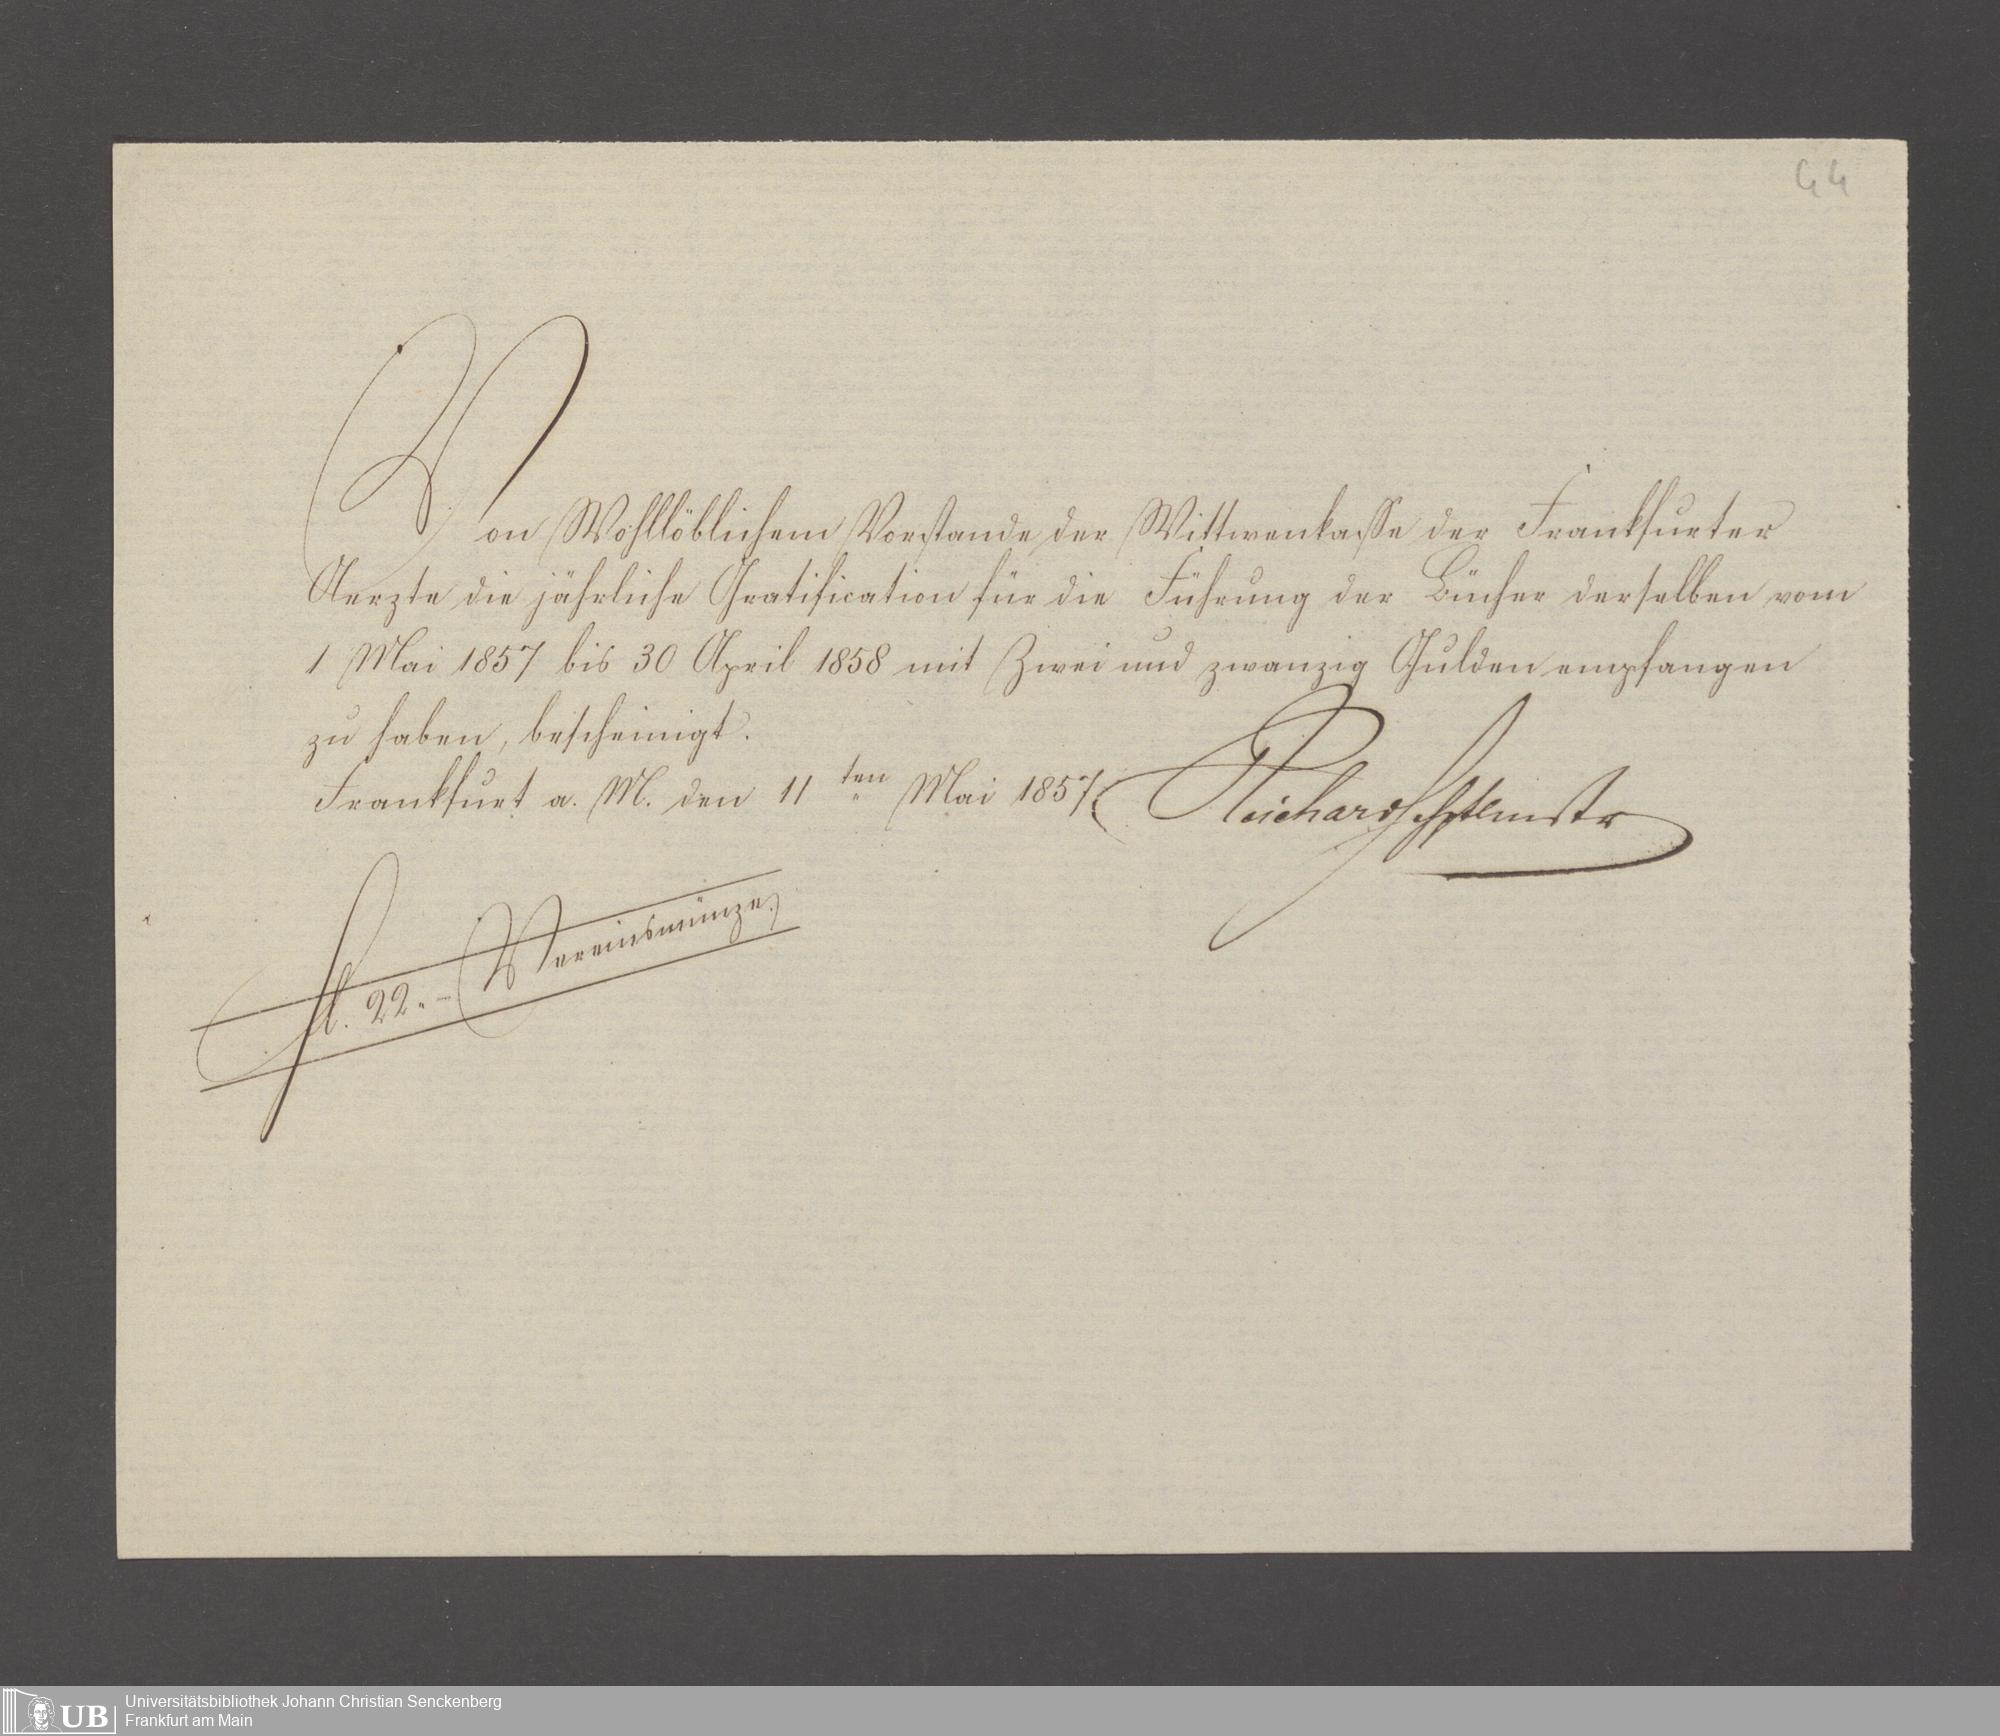 44
Von Wohllöblichem Vorstande der Wittwenkasse der Frankfurter
Aerzte die jährliche Gratification für die Führung der Bücher derselben vom
1 Mai 1857 bis 30 April 1858 mit Zwei und zwanzig Gulden empfangen
zu haben, bescheinigt.
Frankfurt a. M. den 11ten Mai 1857
fl. 22.– Vereinsmünze.
UB
Universitätsbibliothek Johann Christian Senckenberg
Frankfurt am Main